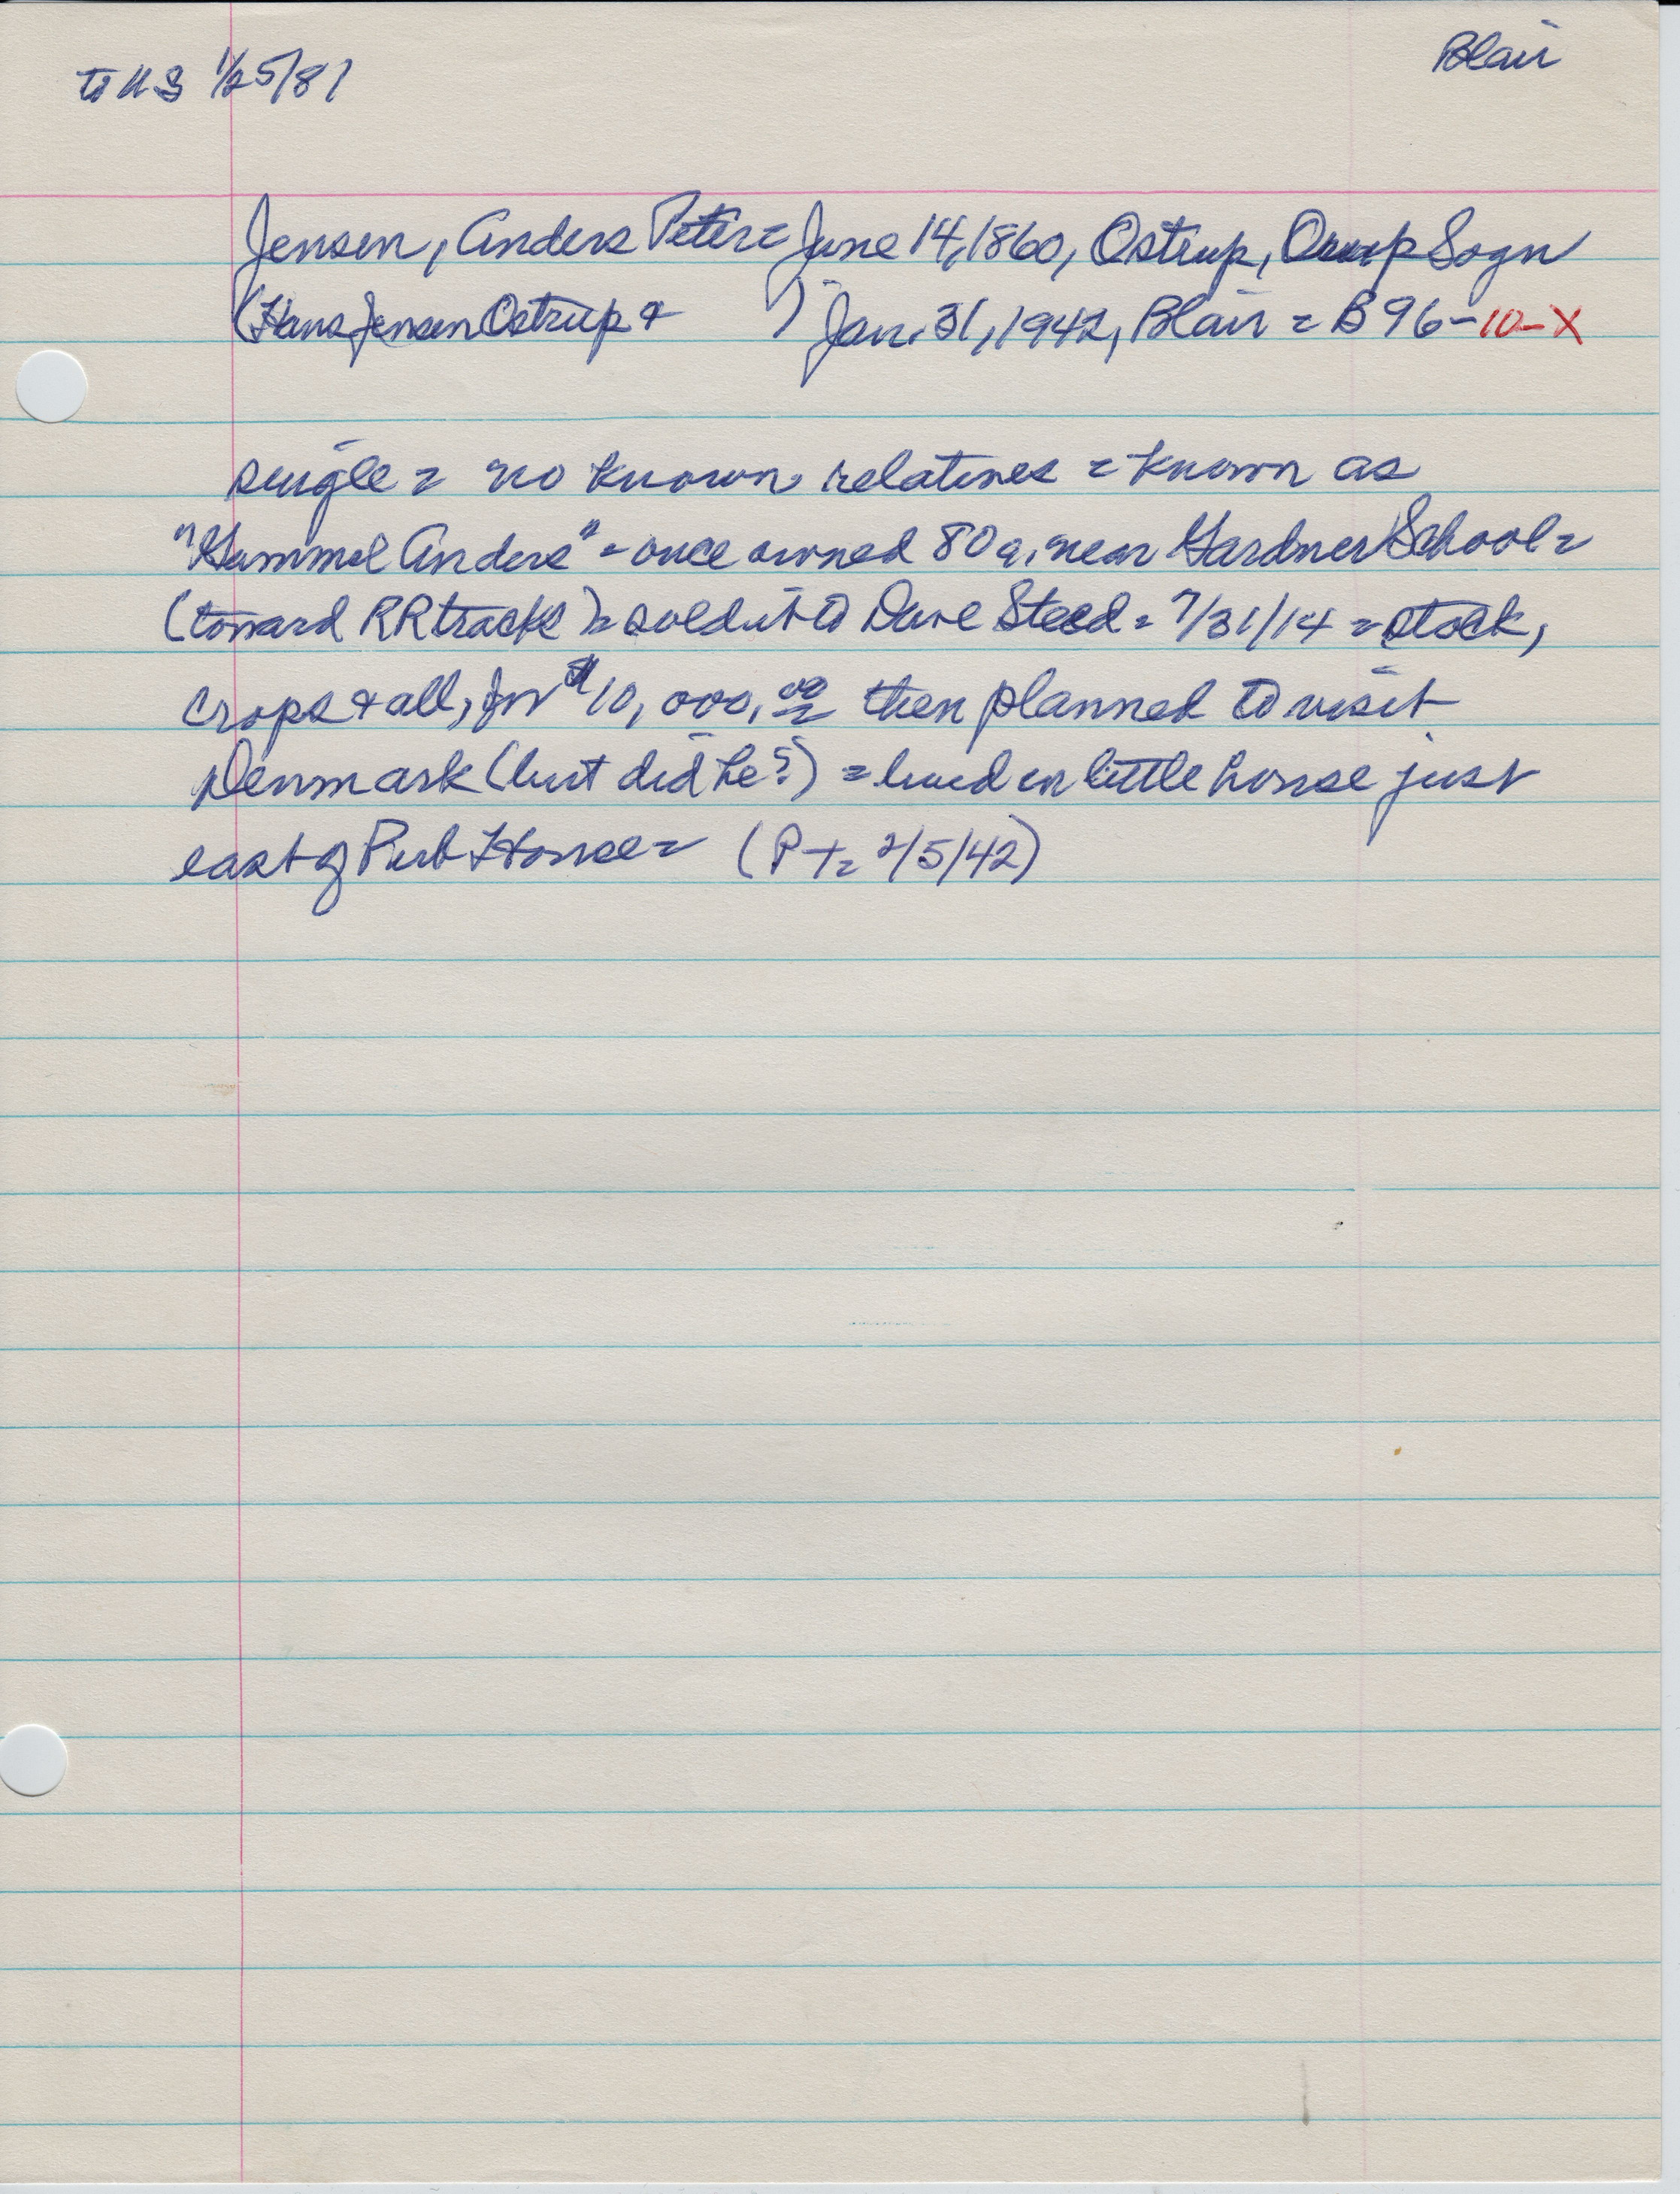 to HS 1/25/81
Blair
Jensen, Anders Peter = June 14, 1860, Ostrup, Orup Sogn
(Hans Jensen Ostrup + ) Jan. 31, 1942, Blair = B96-10-X
single = no known relatives = known as
"Gammel Anders" = once owned 80 a, near Gardner School =
(toward RR tracks) = sold it to Dave Steed = 7/31/14 = stock,
crops + all, for $10,000.00 then planned to visit
Denmark (but did he?) = lived in little house just
east of Pub House = (P+ = 2/5/42)